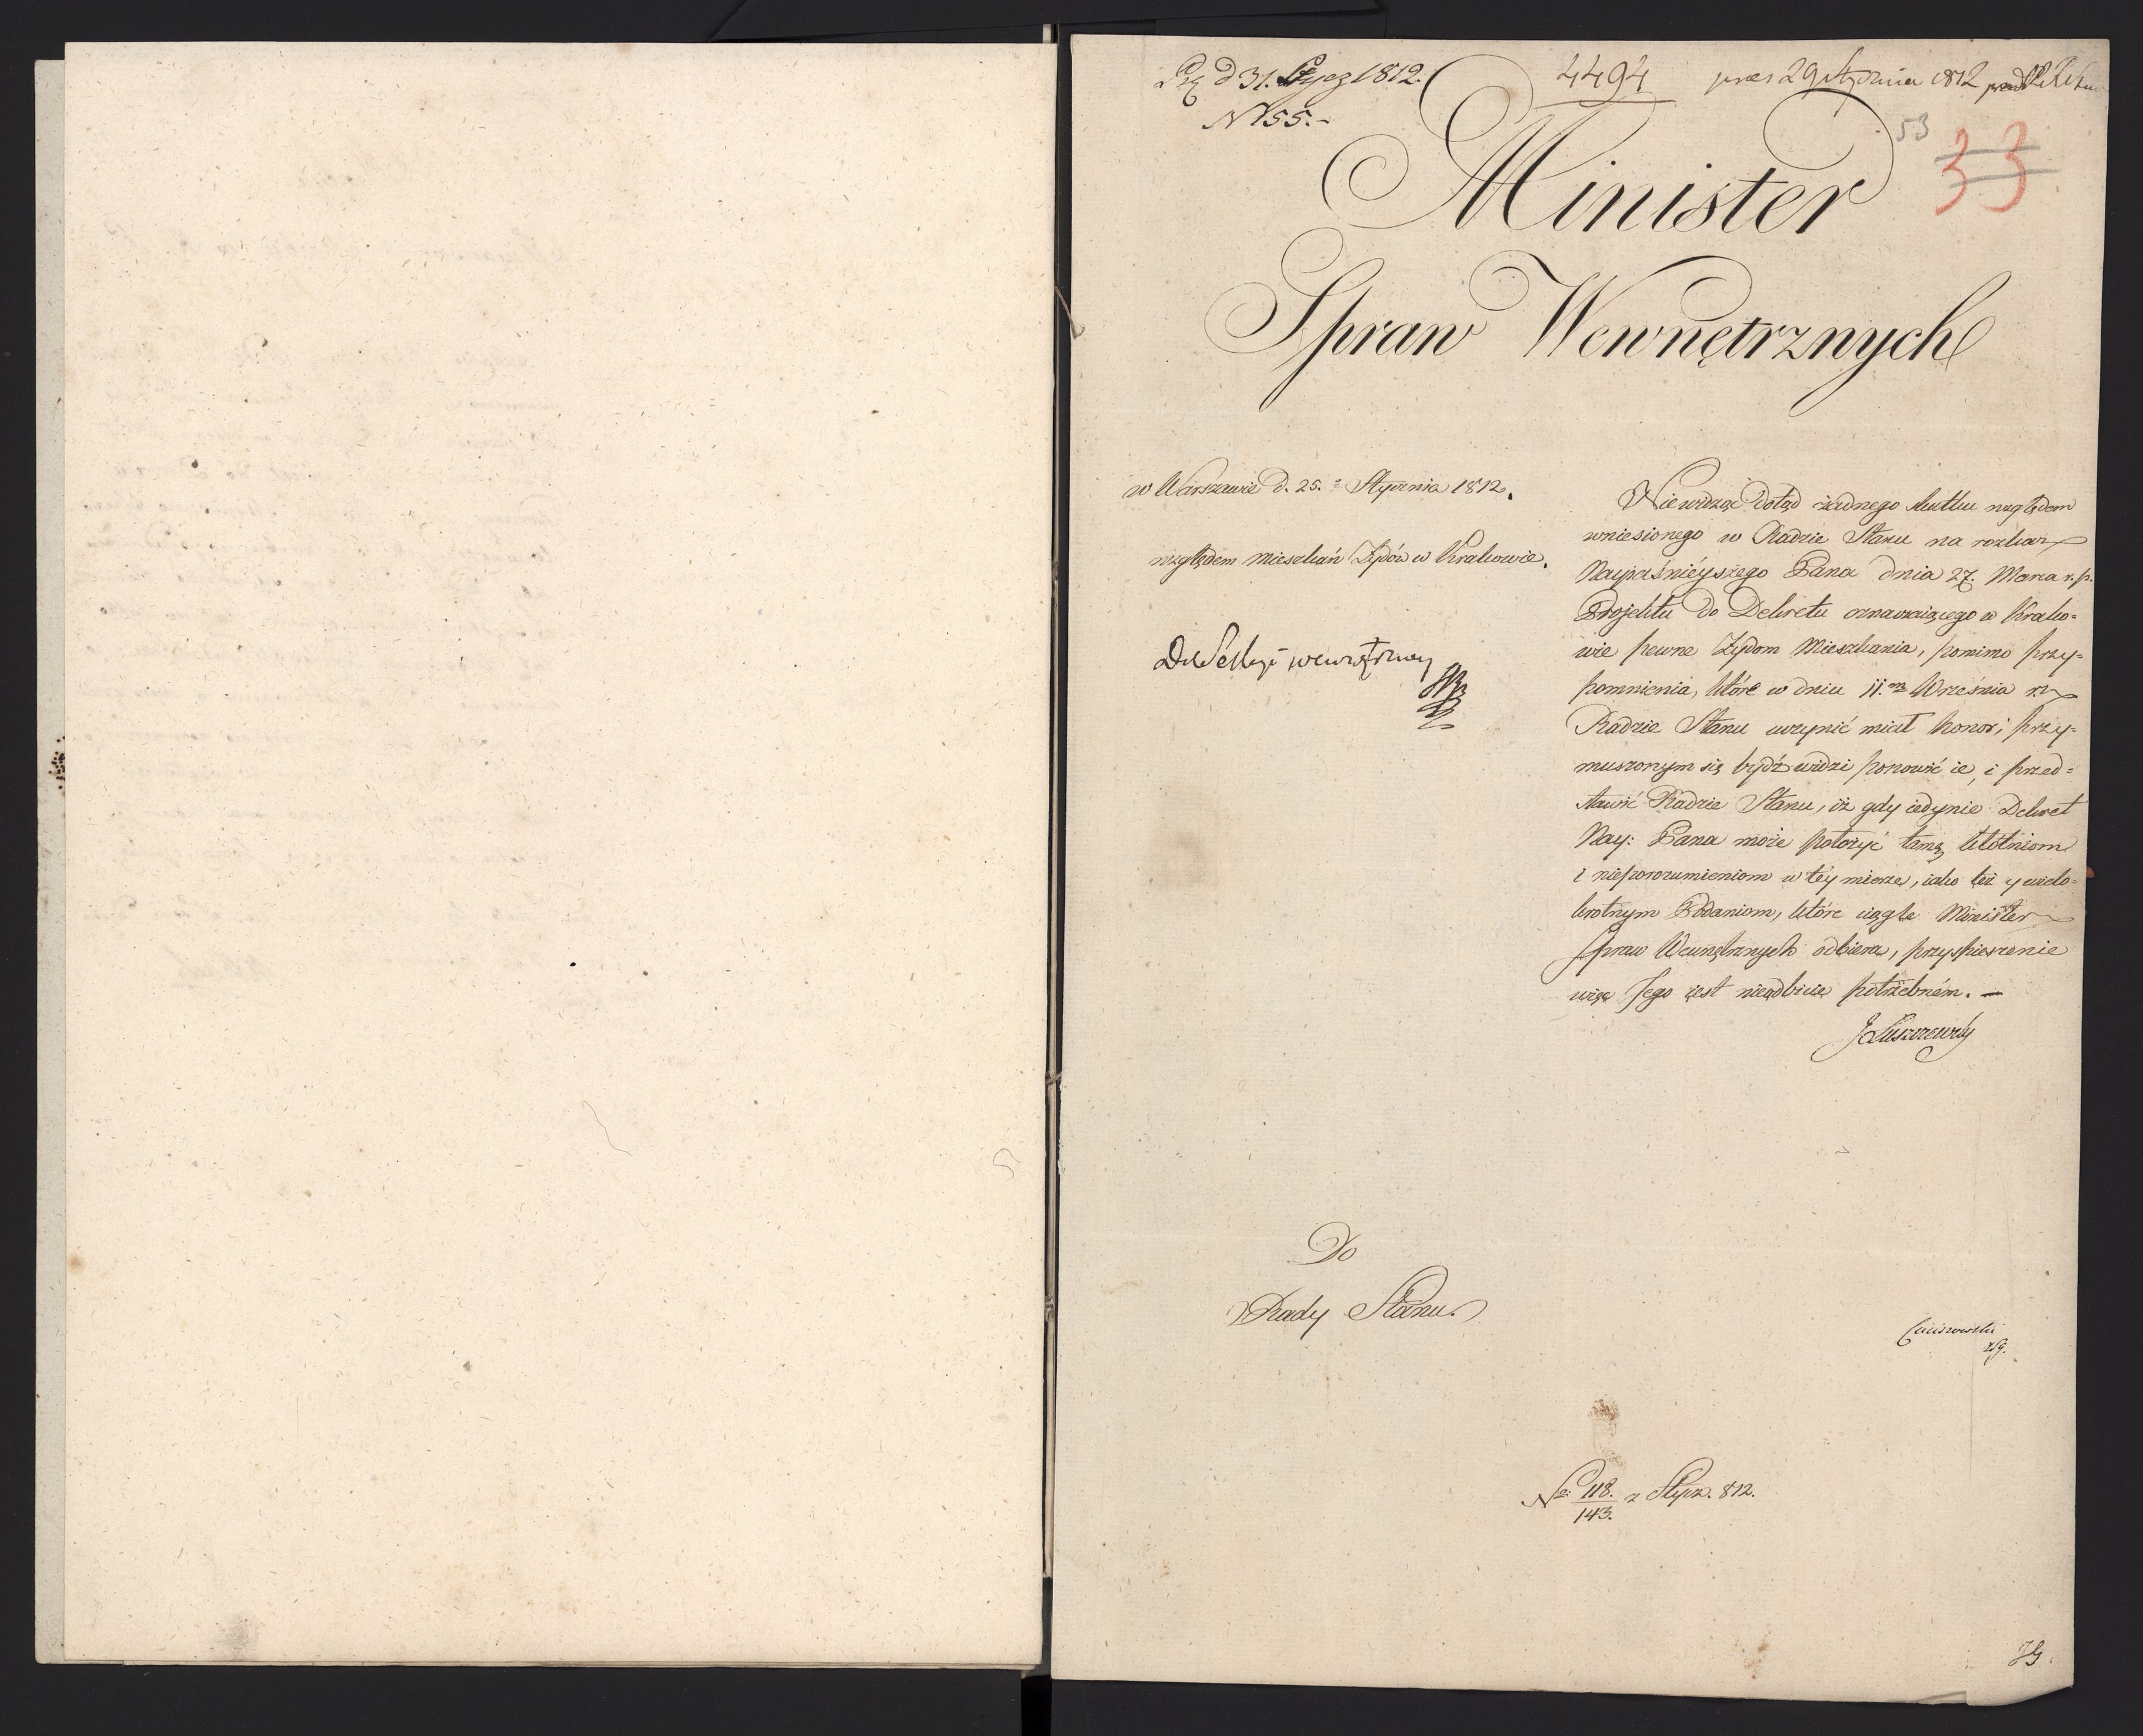 d 31. Stycz 1812.
N 155.-
4494
prez 29 Stycznia 1812
53
33
Minister
Spraw Wewnętrznych
w Warszawie d. 25. Stycznia 1812.
względem mieszkań Żydów w Krakowie.
Do Sekcyi wewnętrzney
Niewidząc dotąd żadnego skutku względem
wniesionego w Radzie Stanu na rozkaz
Nayjaśnieyszego Pana dnia 27. Marca r. p.
Projektu do Dekretu oznaczaiącego w Krako=
wie pewne Żydom Mieszkania, pomimo przy=
pomnienia, które w dniu 11. Września r. z.
Radzie Stanu uczynić miał honor; przy=
muszonym się bydź widzi ponowić ie, i przed=
stawić Radzie Stanu, iż gdy iedynie Dekret
Nay: Pana może położyć tamę kłótniom
i nieporozumieniom w téy mierze, iako też y wielo=
krotnym Podaniom, które ciągle Minister
Spraw Wewnętrznych odbiera, przyspieszenie
więc Jego iest nieodbicie potrzebném. —
J Łuszczewski
Do
Rady Stanu.
No. 118./143. z Stycz. 812.